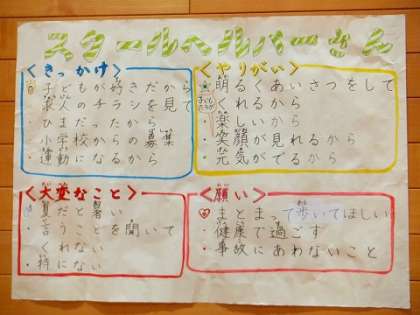 スクールヘルパーさん
<きっかけ>
子どもが好きだから
浪人のチラシを見て
・ひまだったから
・小学校からの募集
・運動になるから
<やりがい>
明るくあいさつをして
くれるから
・楽しいから
・笑顔が見れるから
・元気がでるから
<大変なこと>
夏だと暑い
・言うことを聞いて
くれない
・特にない
<願い>
まとまって歩いてほしい
・健康で過ごす
・事故にあわないこと